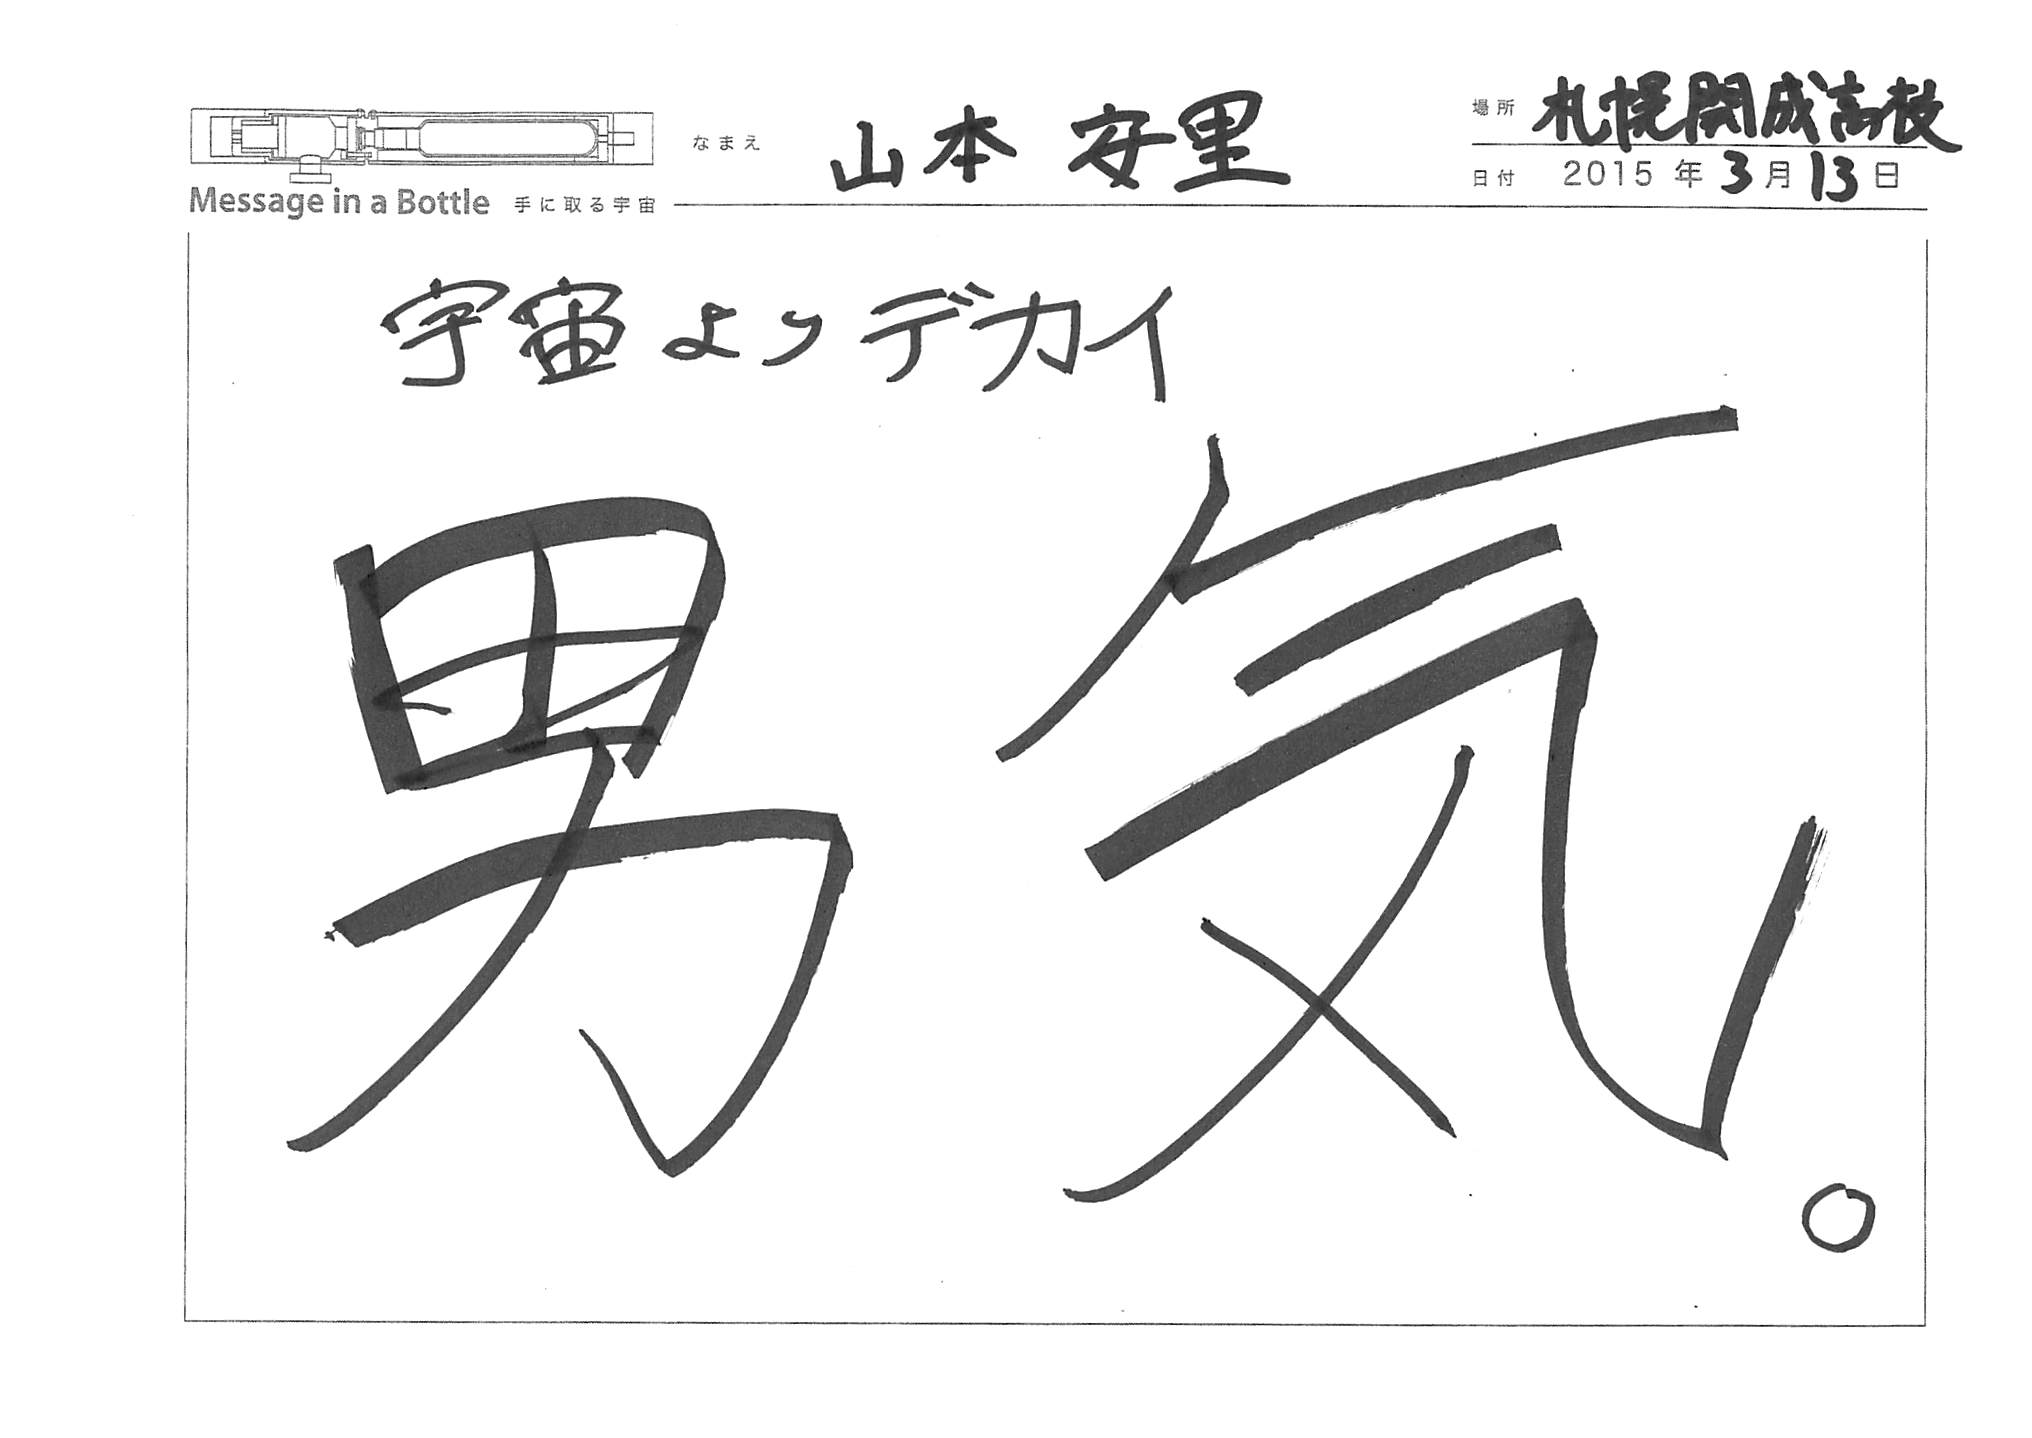 なまえ 山本 安里
場所 札幌開成高校
日付 2015 年 3 月 13 日
Message in a Bottle 手に取る宇宙
宇宙よりデカイ
男気。